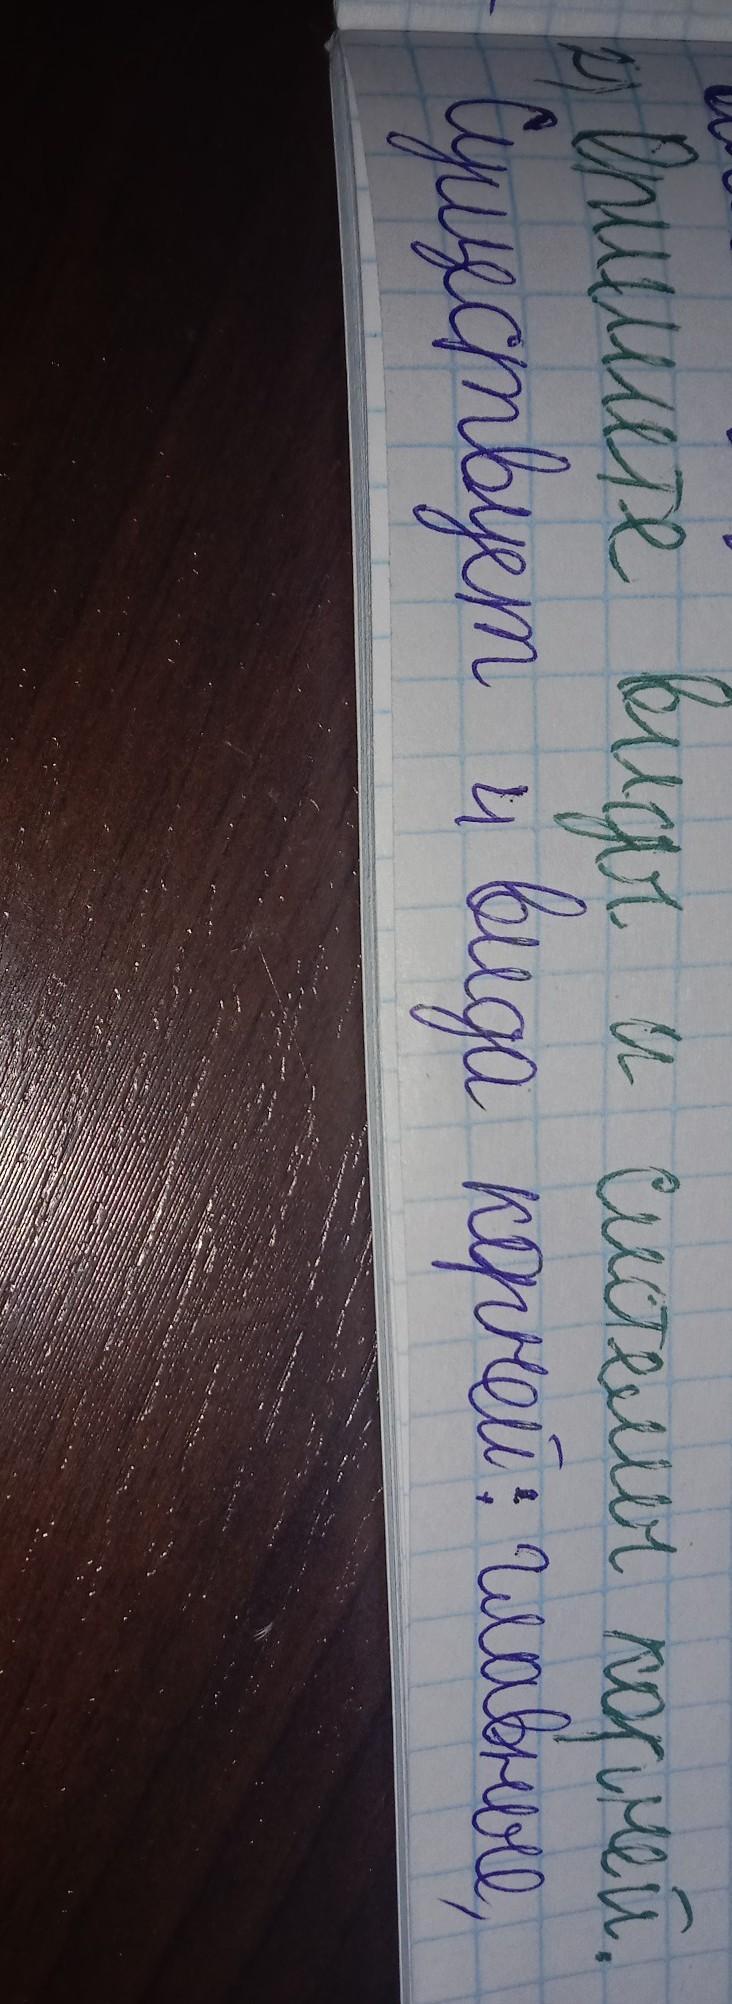 2) Опишите виды и системы корней.
Существует 4 вида корней: главные,